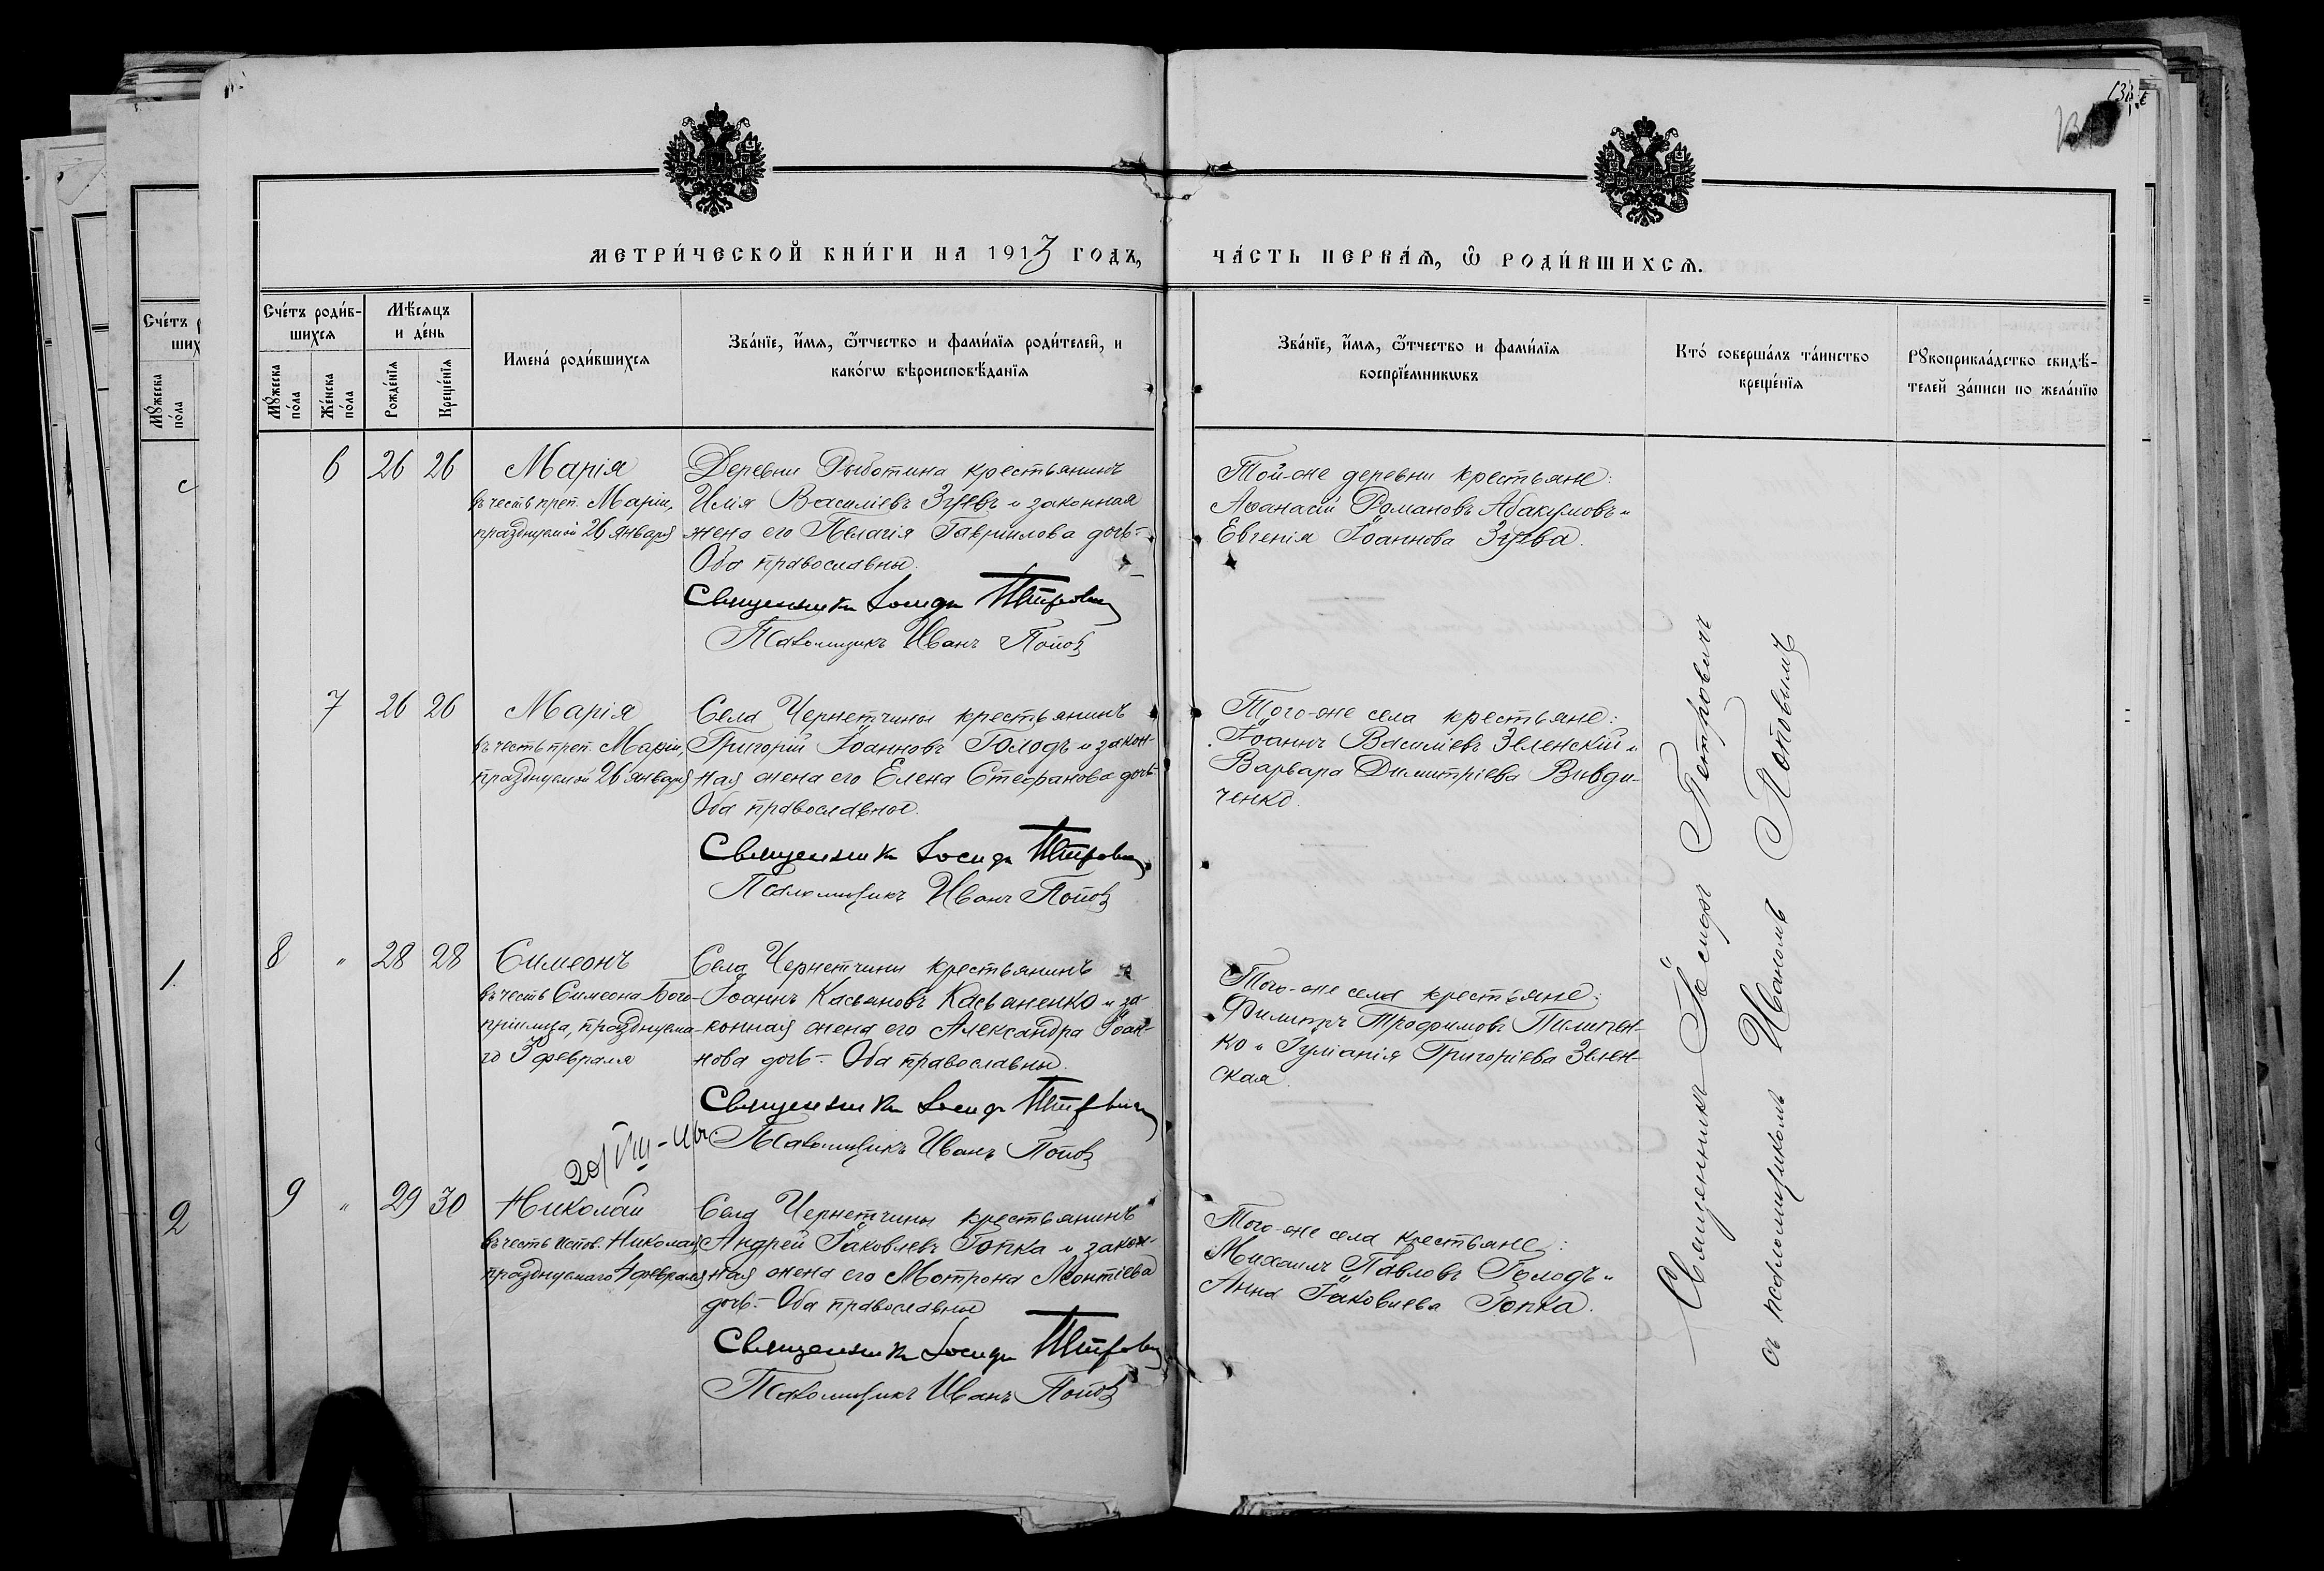 МЕТРИ́ЧЕСКОЙ КНИ́ГИ НА 1913 ГОДЪ,
ЧА́СТЬ ПЕРВА́Ѧ, Ѡ РОДИ́ВШИХСѦ.
Сче́тъ роди́в-
шихсѧ
Мꙋ́жеска
по́ла
Же́нска
по́ла
Мѣ́сѧцъ
и де́нь
Рожде́нїѧ
Креще́нїѧ
Имена́ роди́вшихсѧ
Зва́нїе, и́мѧ, ѻ҆́тчество и фами́лїѧ роди́телей, и
како́гѡ вѣроисповѣ́данїѧ
Зва́нїе, и́мѧ, ѻ҆́тчество и фами́лїѧ
воспрїе́мникѡвъ
Кто́ соверша́лъ та́инство
креще́нїѧ
Рꙋкоприкла́дство свидѣ́-
телей за́писи по жела́нїю
6 26 26
Марія
въ честь преп. Маріи,
празднуемой 26 января
Деревни Рыботина крестьянинъ
Илія Василіевъ Зуевъ и законная
жена его Пелагія Гавриилова дочь.-
Оба православны.
Священникъ Іосифъ Петровичъ
Псаломщикъ Иванъ Поповъ
Той-же деревни крестьяне:
Аѳанасій Романовъ Абакумовъ и
Евгенія Іоаннова Зуева.
7 26 26
Марія
въ честь преп. Маріи,
празднуемой 26 января
Села Чернетчины крестьянинъ
Григорій Іоанновъ Голодъ и закон-
ная жена его Елена Стефанова дочь.-
Оба православные.
Священникъ Іосифъ Петровичъ
Псаломщикъ Иванъ Поповъ
Того-же села крестьяне:
Іоаннъ Василіевъ Зеленскій и
Варвара Димитріева Вивди-
ченко.
8 " 28 28
Симеонъ
въ честь Симеона Бого-
пріимца, празднуема-
го 3 февраля
Села Чернетчины крестьянинъ
Іоаннъ Касьяновъ Касьяненко и за-
конная жена его Александра Іоан-
нова дочь.- Оба православны.
Священникъ Іосифъ Петровичъ
Псаломщикъ Иванъ Поповъ
Того-же села крестьяне:
Филиппъ Трофимовъ Пилипен-
ко и Іуліанія Григоріева Зелен-
ская.
20/VIII-
9 " 29 30
Николай
въ честь испов. Николая,
празднуемаго 4 февраля
Села Чернетчины крестьянинъ
Андрей Іаковлевъ Гопка и закон-
ная жена его Мотрона Леонтіева
дочь.- Оба православные
Священникъ Іосифъ Петровичъ
Псаломщикъ Иванъ Поповъ
Того-же села крестьяне:
Михаилъ Павловъ Голодъ и
Анна Іаковлева Гопка.
Священникъ Іосифъ Петровичъ
съ псаломщикомъ Иваномъ Поповымъ
Сче́тъ
ших
Мꙋ́жеска
по́ла
1.
2